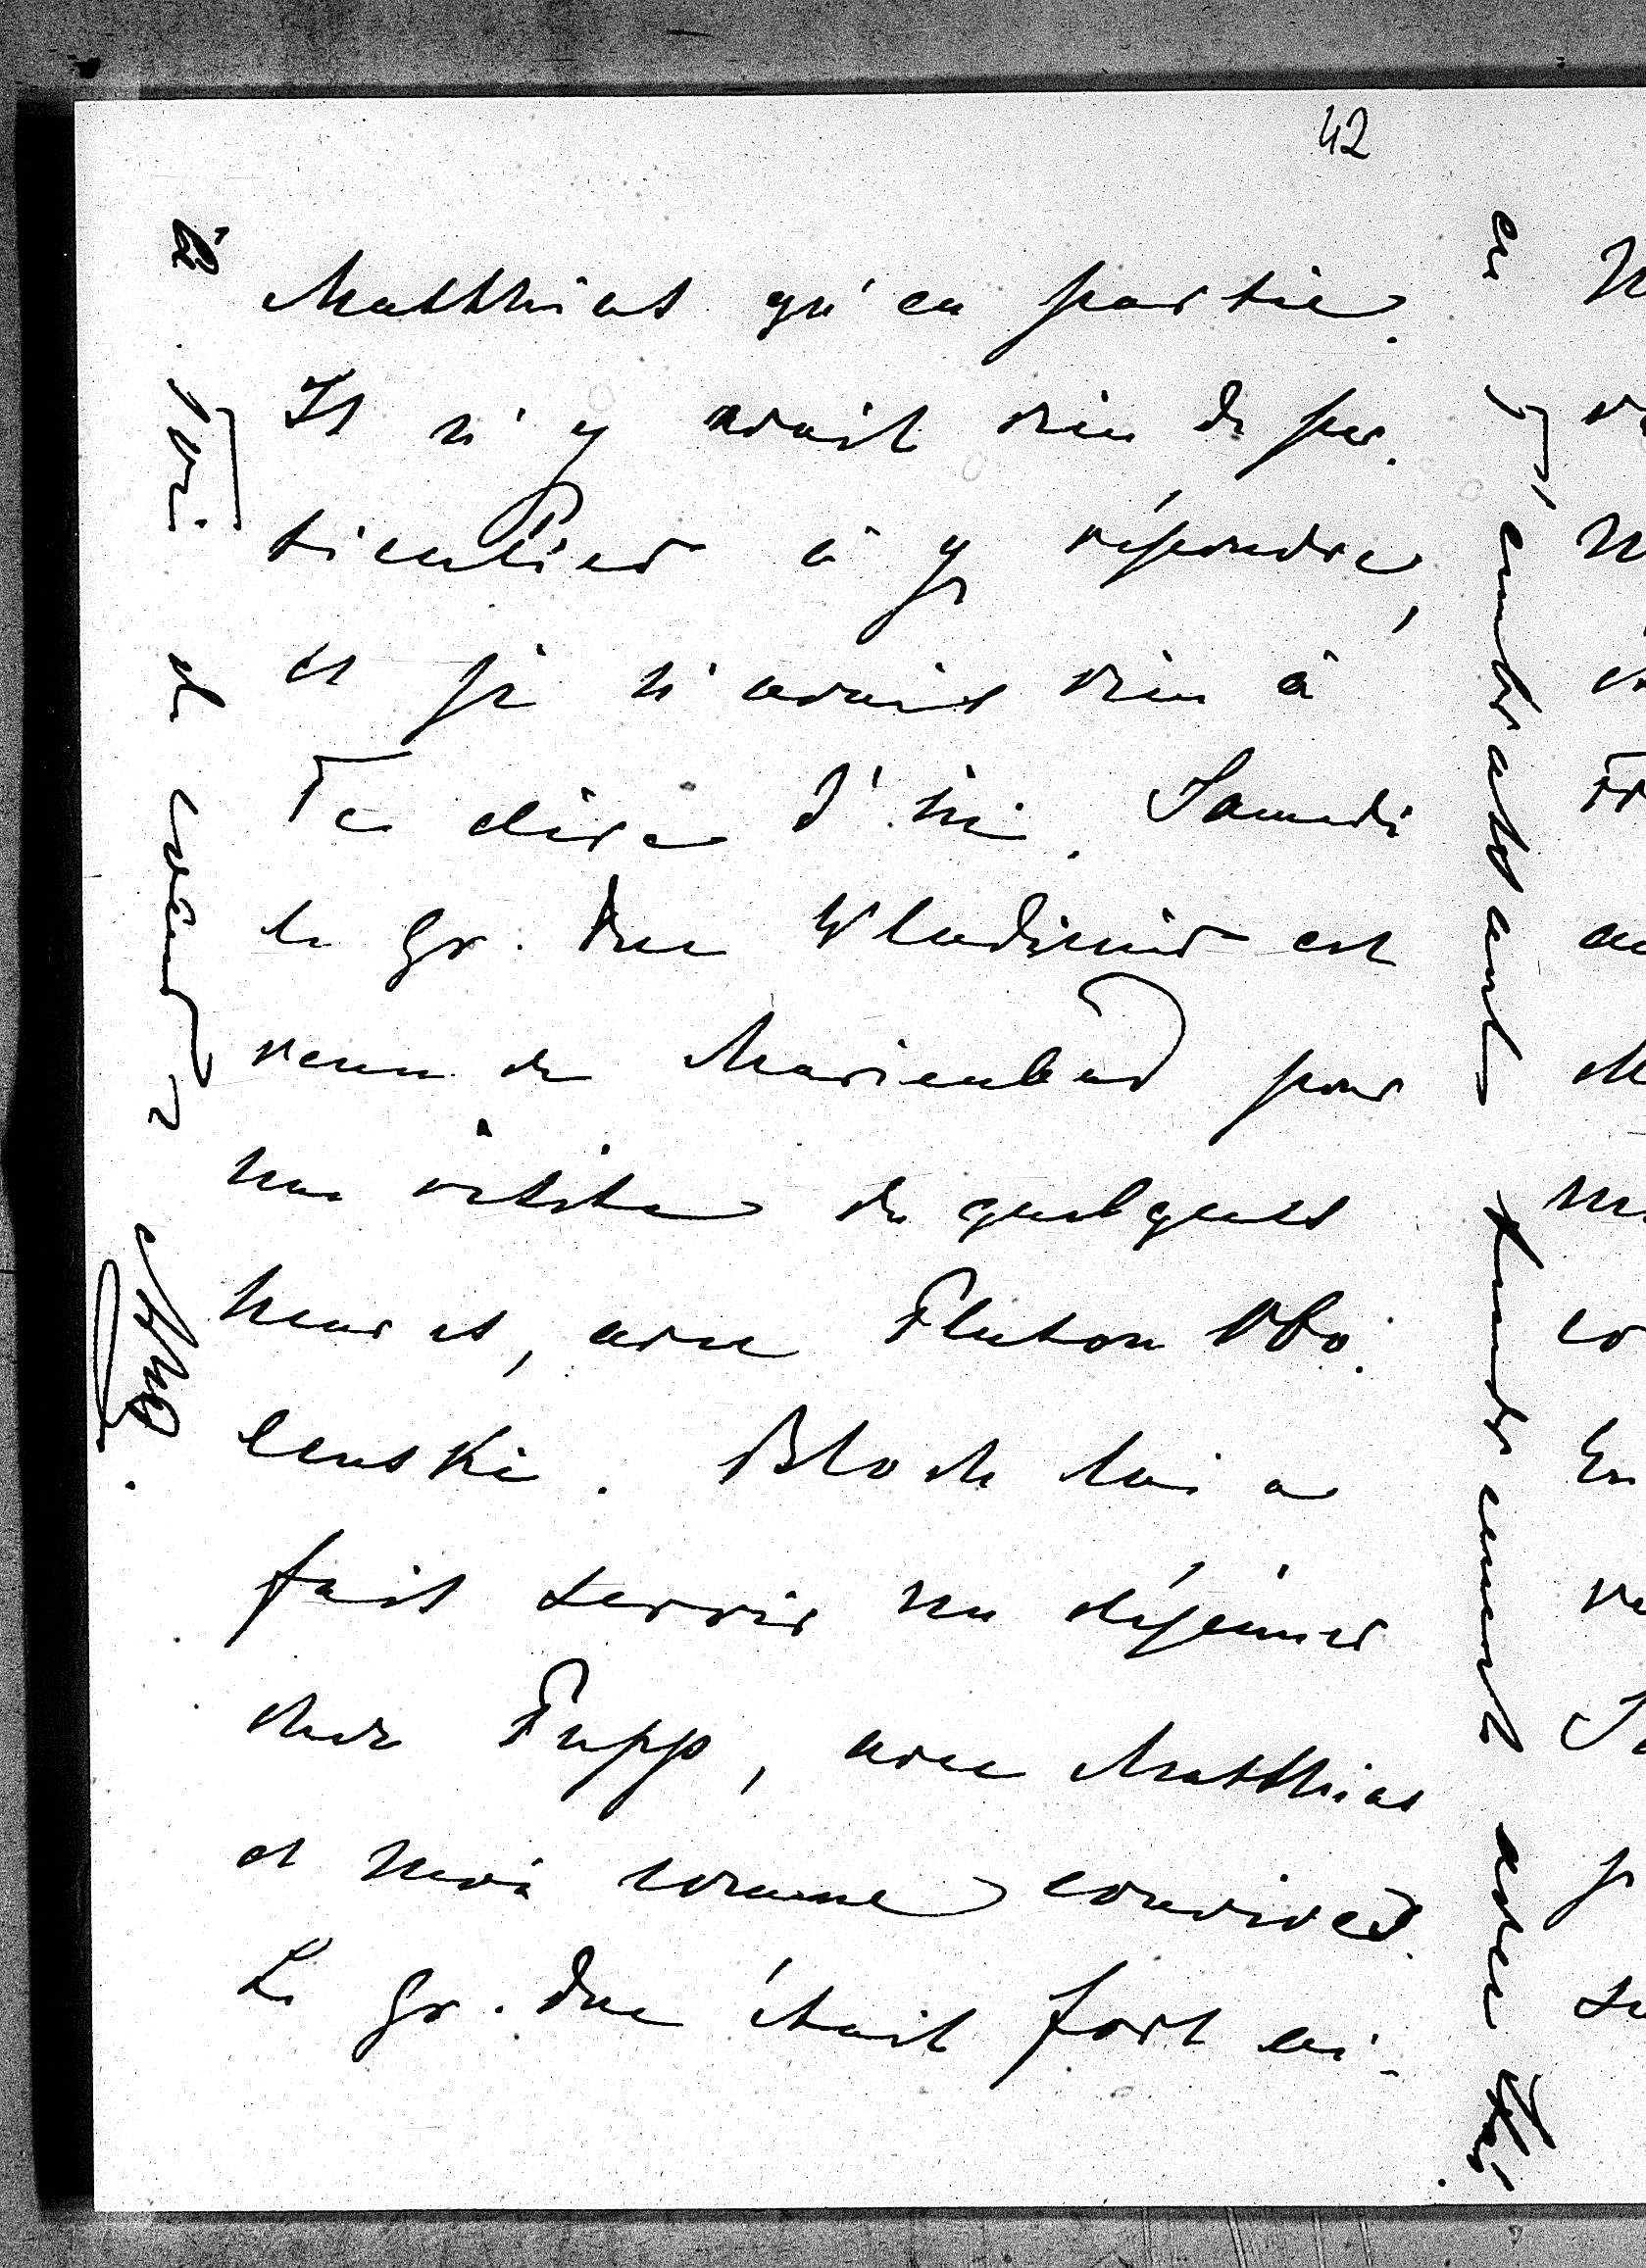 42
Matthias qu'en partie.
Il n'y avait rien de par-
ticulier à y répondre,
et je n'avais rien à
Te dire d'ici. Samedi
le Gr. Duc Wladimir est
venu de Marienbad pour
une visite de quelques
heures, avec Platon Obo-
lenski. Bloch lui a
fait servir un déjeuner
chez Pupp, avec Matthias
et moi comme convives.
Le Gr. Duc était fort ai-
à Toi de coeur
en T'embrassant tendrement avec